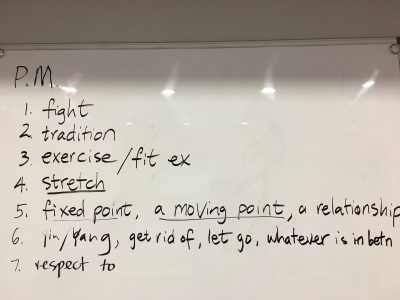 P.M.
1. fight
2. tradition
3. exercise/fit ex
4. stretch
5. fixed point, a moving point, a relationship
6. yin/yang, get rid of, let go, whatever is in betn
7. respect to